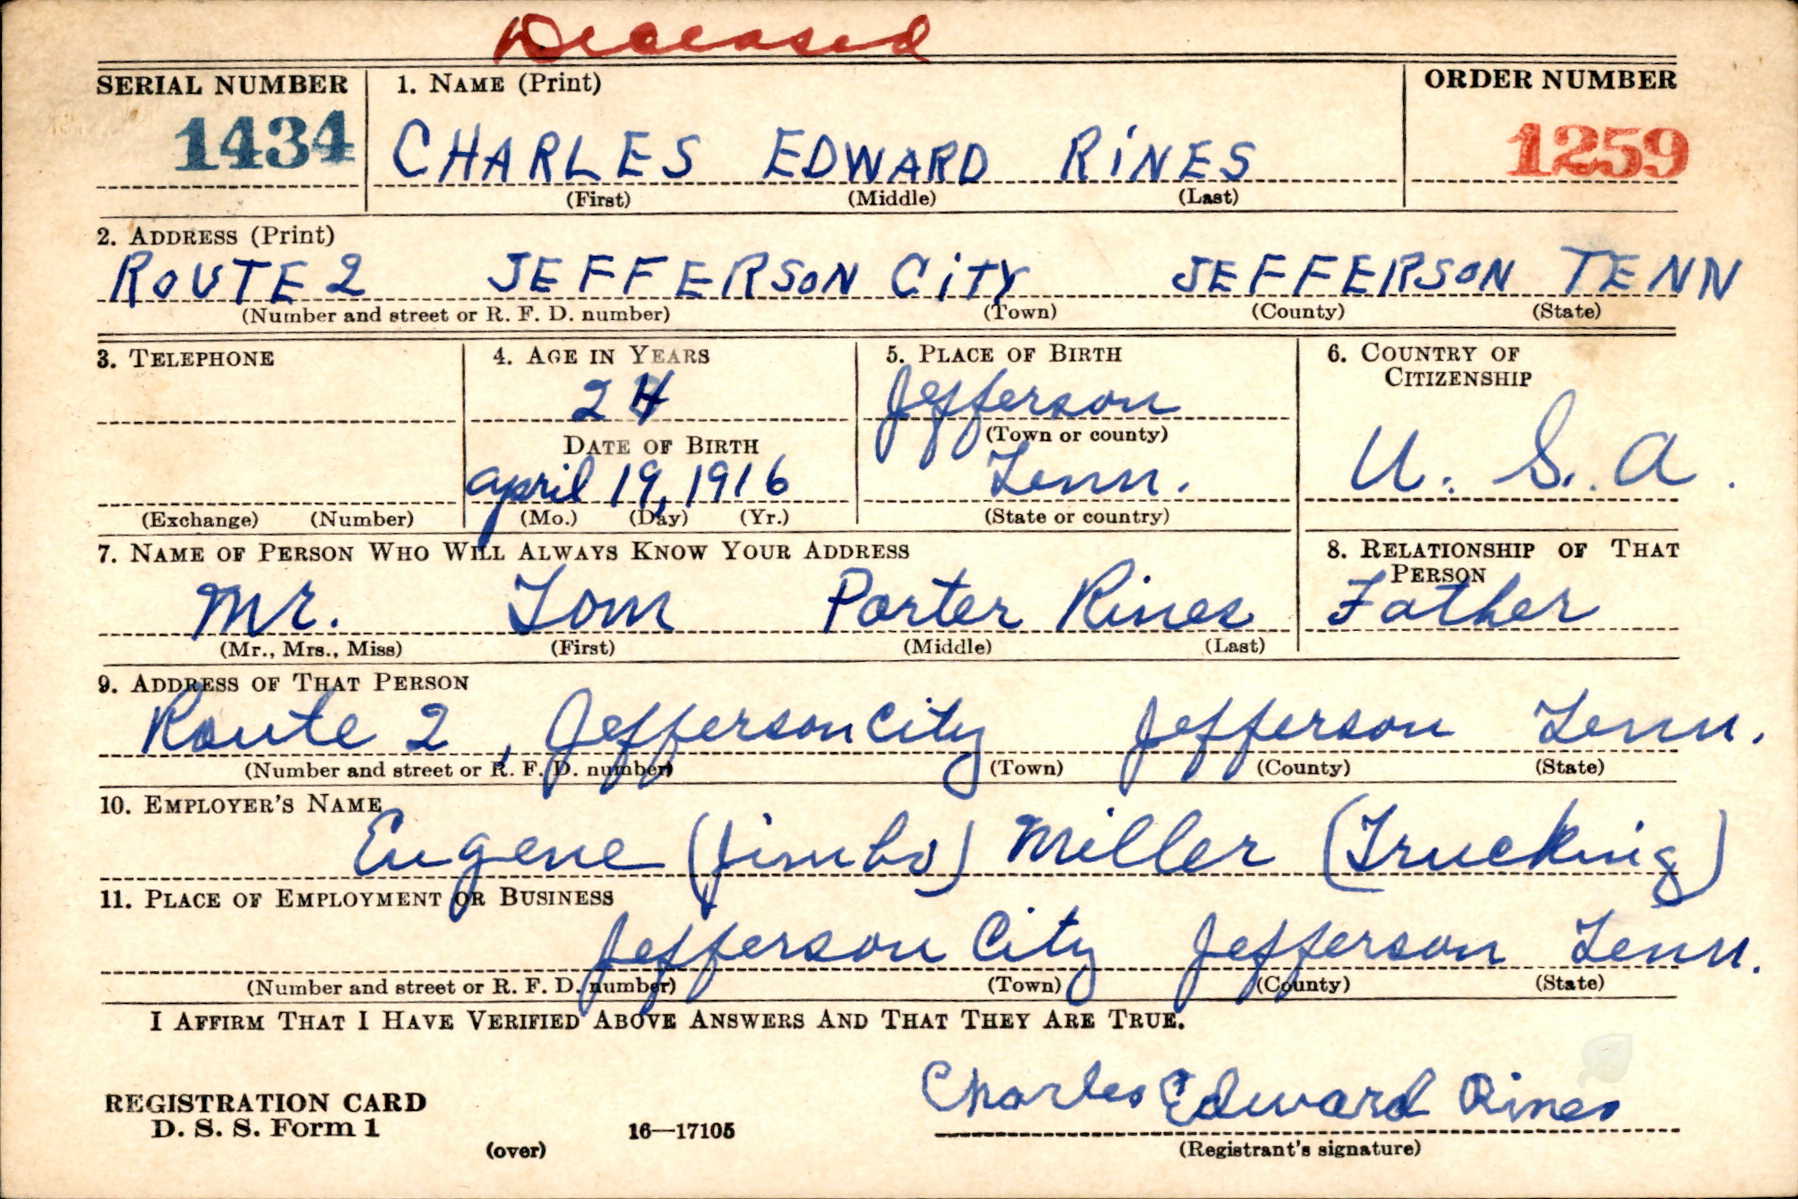 Deceased
SERIAL NUMBER 1. NAME (Print) ORDER NUMBER
1434 CHARLES EDWARD RINES 1259
(First) (Middle) (Last)
2. ADDRESS (Print)
ROUTE 2 JEFFERSON CITY JEFFERSON TENN
(Number and street or R. F. D. number) (Town) (County) (State)
3. TELEPHONE 4. AGE IN YEARS 5. PLACE OF BIRTH 6. COUNTRY OF
CITIZENSHIP
24 Jefferson
DATE OF BIRTH (Town or county)
april 19, 1916 Tenn. U. S. A.
(Exchange) (Number) (Mo.) (Day) (Yr.) (State or country)
7. NAME OF PERSON WHO WILL ALWAYS KNOW YOUR ADDRESS 8. RELATIONSHIP OF THAT
PERSON
Mr. Tom Porter Rines Father
(Mr., Mrs., Miss) (First) (Middle) (Last)
9. ADDRESS OF THAT PERSON
Route 2, Jefferson City Jefferson Tenn.
(Number and street or R. F. D. number) (Town) (County) (State)
10. EMPLOYER'S NAME
Eugene (Jimbo) Miller (Trucking)
11. PLACE OF EMPLOYMENT OR BUSINESS
Jefferson City Jefferson Tenn.
(Number and street or R. F. D. number) (Town) (County) (State)
I AFFIRM THAT I HAVE VERIFIED ABOVE ANSWERS AND THAT THEY ARE TRUE.
Charles Edward Rines
REGISTRATION CARD
D. S. S. Form 1 16—17105
(over) (Registrant's signature)